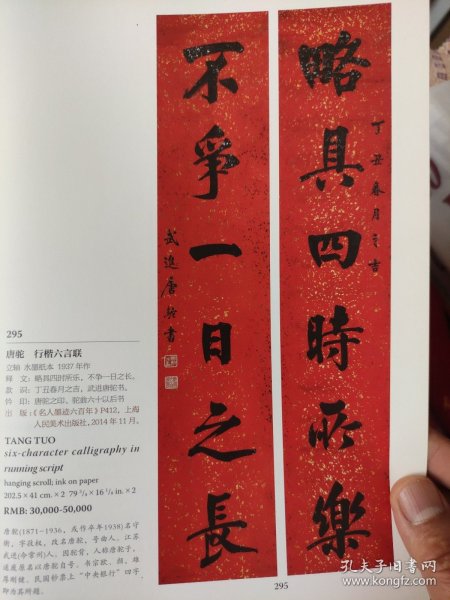 略具四時所樂
丁丑春月之吉
不爭一日之長
武進唐駝書
295
唐驼 行楷六言联
立轴 水墨纸本 1937年作
释 文：略具四时所乐，不争一日之长。
款 识：丁丑春月之吉，武进唐驼书。
钤 印：唐驼之印、驼翁六十以后书
出 版：《名人墨迹六百年》P412，上海
人民美术出版社，2014年11月。
TANG TUO
six-character calligraphy in
running script
hanging scroll; ink on paper
202.5 × 41 cm. × 2 79 5/8 × 16 1/8 in. × 2
RMB: 30,000-50,000
唐驼(1871-1936，或作卒年1938)名守
衡，字孜权，改名唐驼，号曲人。江苏
武进(今常州)人，因驼背，人称唐驼子，
遂废原名以唐驼自号。书宗欧、颜，雄
厚刚健。民国钞票上“中央银行”四字
即为其所题。
295
孔夫子旧书网